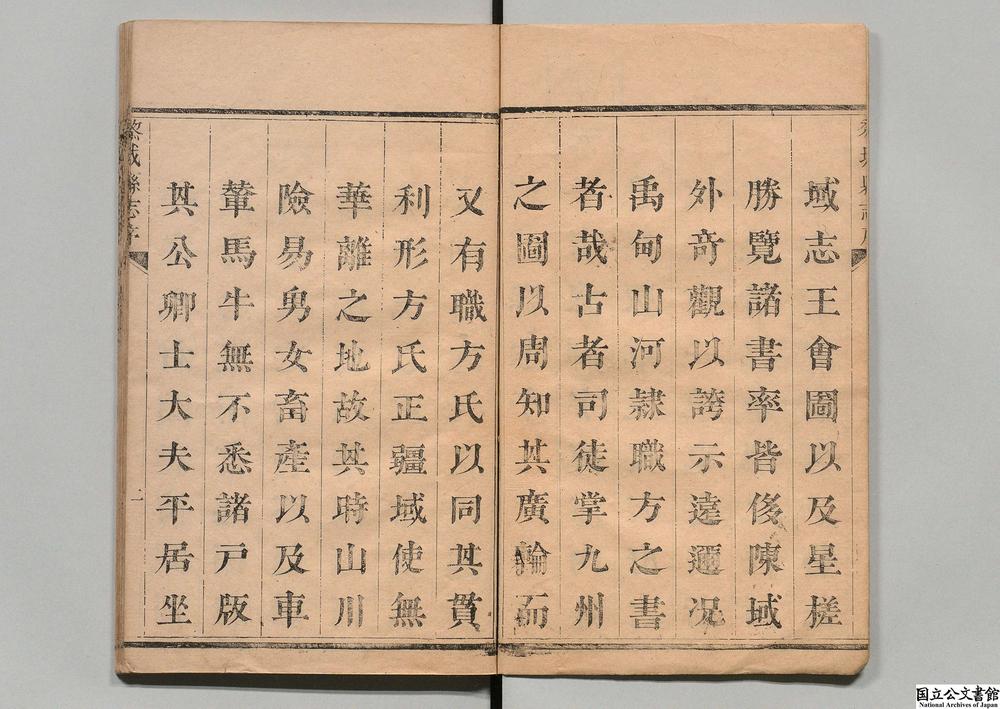 域志王會圖以及星槎
勝覽諸書率皆侈陳域
外奇觀以誇示遠邇况
禹甸山河隸職方之書
者哉古者司徒掌九州
之圖以周知其廣輪而
又有職方氏以同其貫
利形方氏正疆域使無
華離之地故其時山川
險易男女畜產以及車
輦馬牛無不悉諸戸版
其公卿士大夫平居坐
縣志序
二
国立公文書館
National Archives of Japan